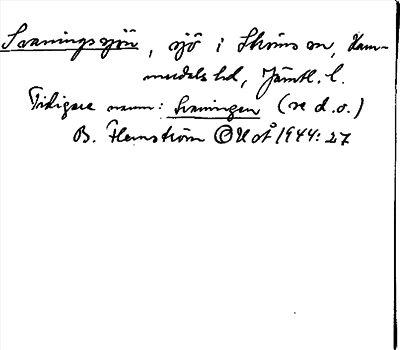 Svaningssjön, sjö i Ströms sn, Ham-
merdals hd, Jämtl. l.
Tidigare namn: Svaningen (se d.o.)
B. Flemström OUoÅ 1944: 27